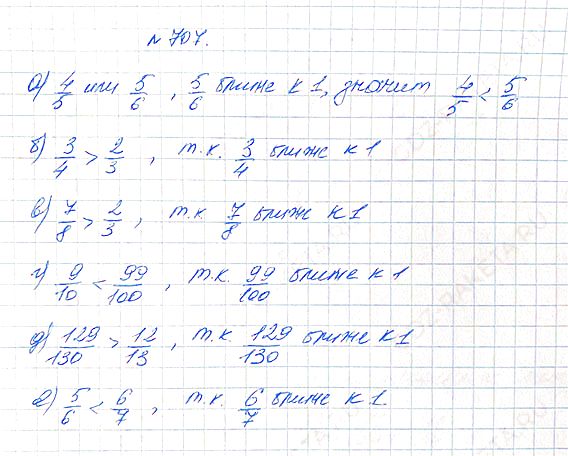 № 707.
а) 4/5 или 5/6 , 5/6 ближе к 1, значит 4/5 < 5/6
б) 3/4 > 2/3 , т.к. 3/4 ближе к 1
в) 7/8 > 2/3 , т.к. 7/8 ближе к 1
г) 9/10 < 99/100 , т.к. 99/100 ближе к 1
д) 129/130 > 12/13 , т.к. 129/130 ближе к 1
е) 5/6 < 6/7 , т.к. 6/7 ближе к 1.